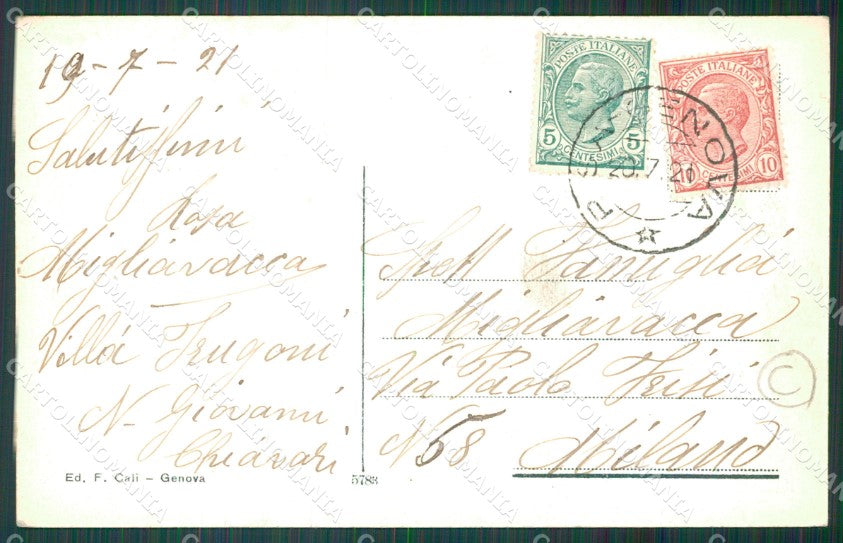 19-7-21
Salutissimi
Rosa
Migliavacca
Villa Frugoni
N. Giovanni
Chiavari
Ed. F. Calì - Genova
5783
POSTE ITALIANE
5 5
CENTESIMI
POSTE ITALIANE
10
CENTESIMI
20.7.21
Famiglia
Migliavacca
Via Paolo Frisi
N 58
Milano
C
CARTOLINOMANIA